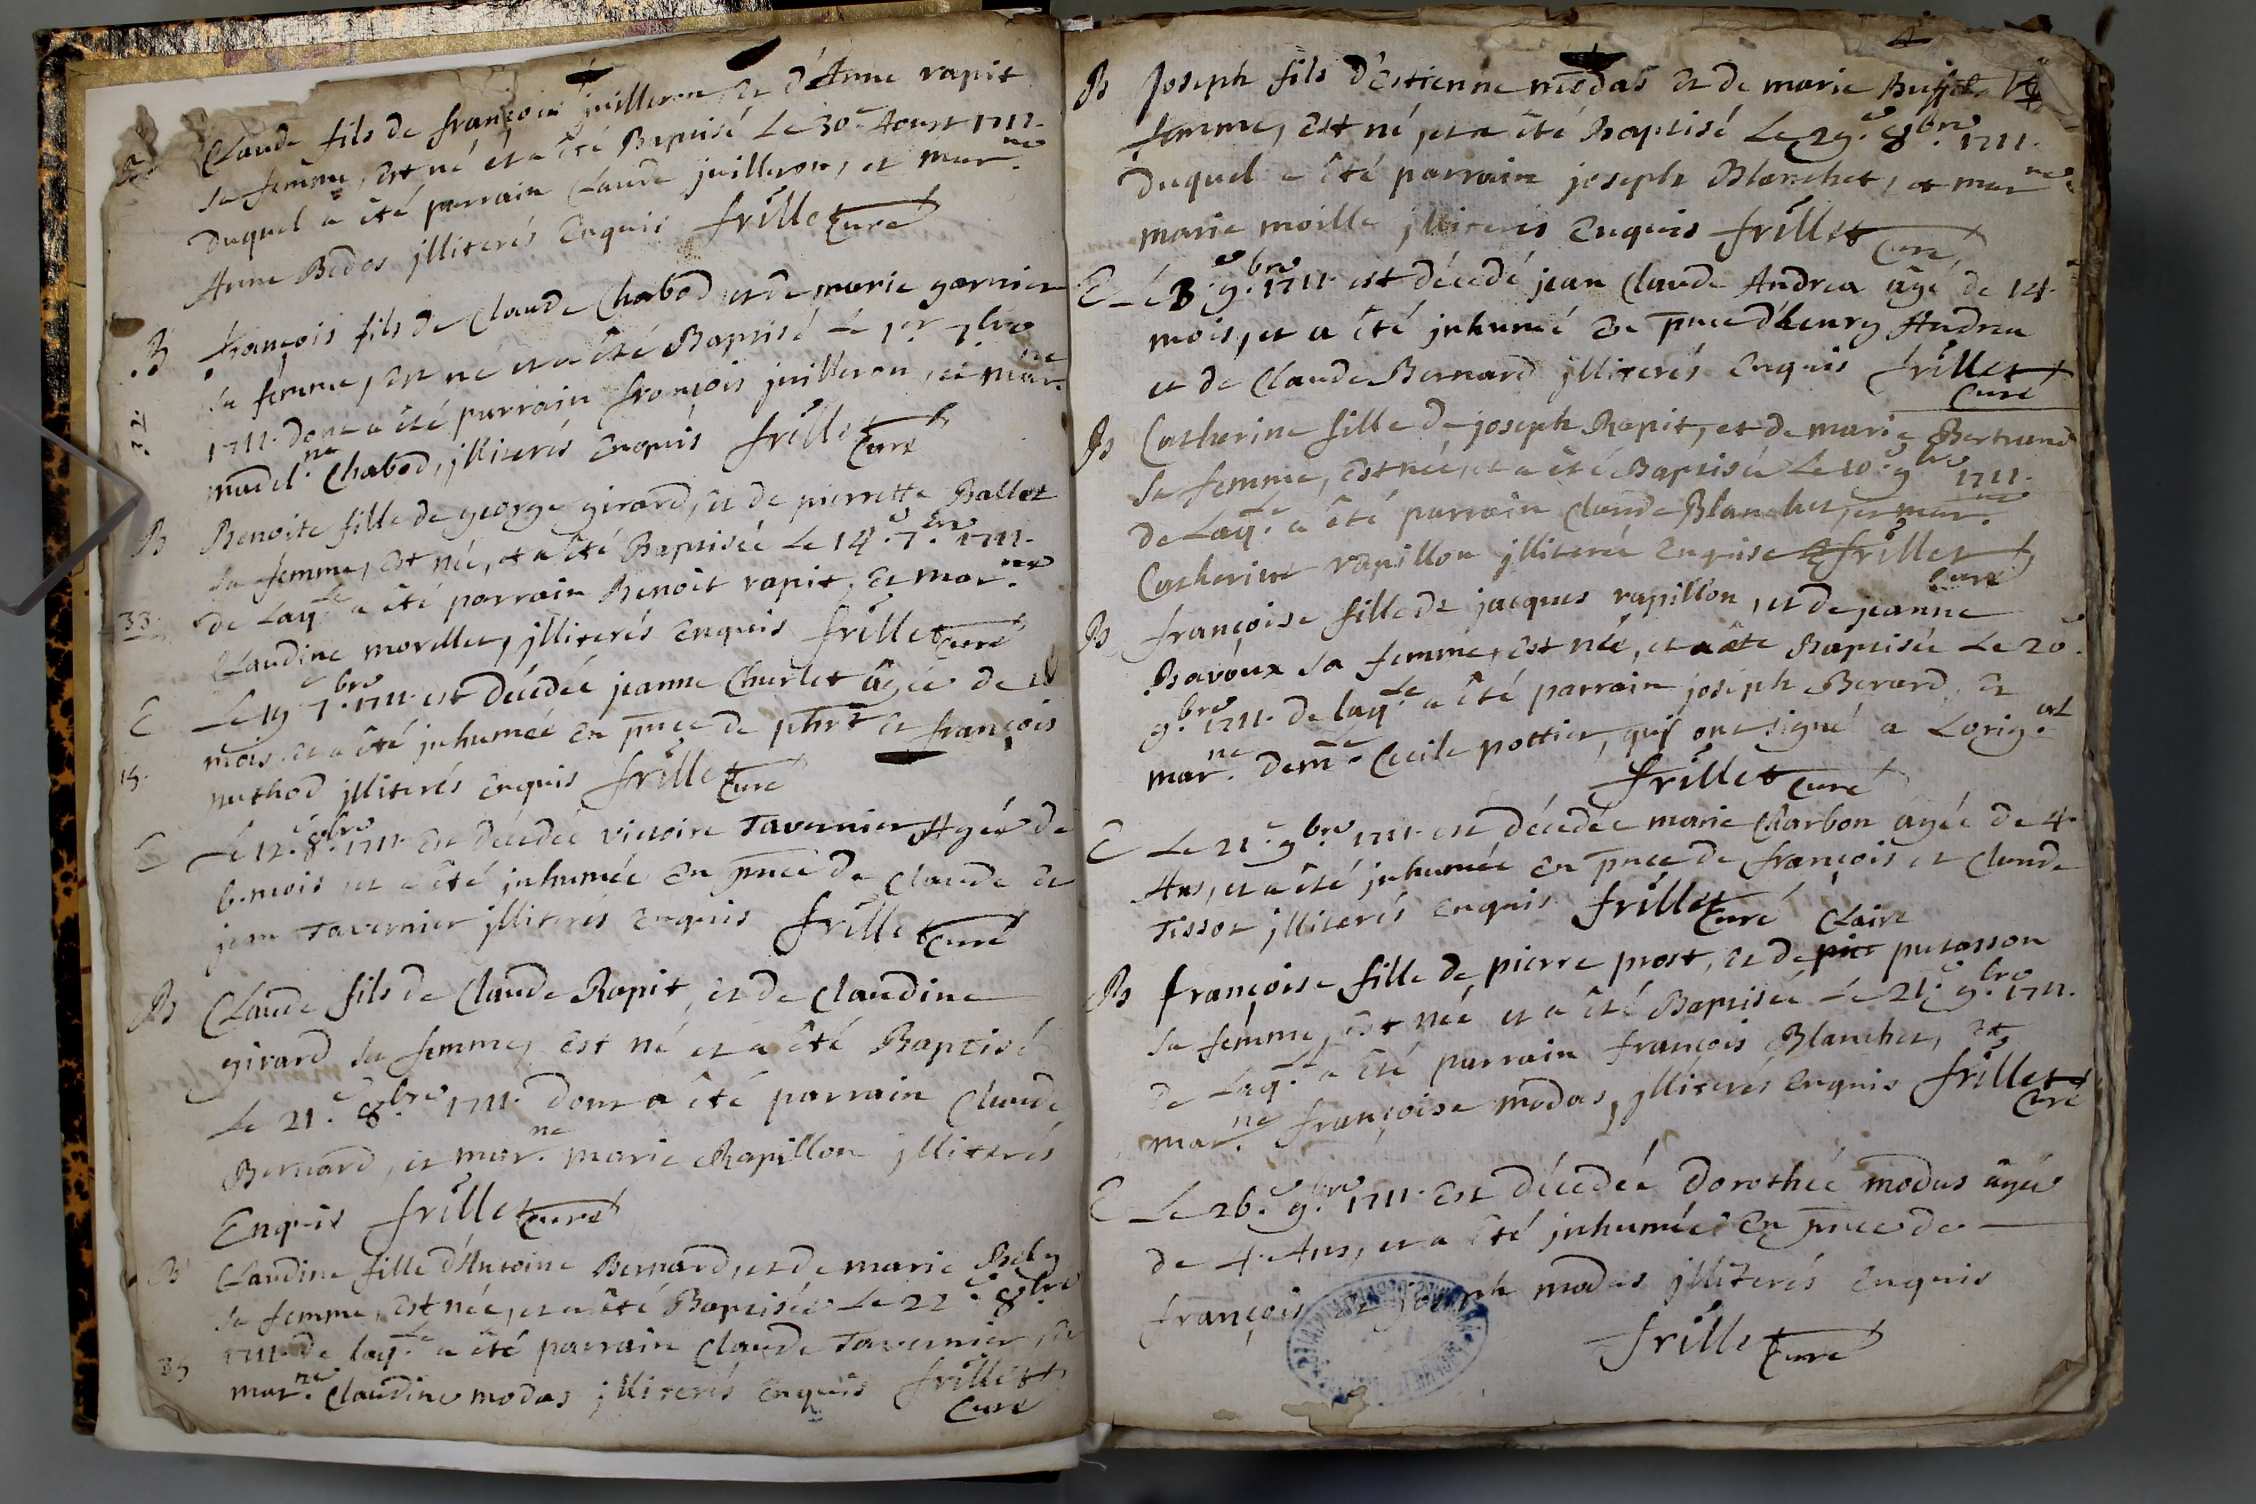 B Claude fils de françois juilleron, et d'Anne rapit
sa femme, est né et a êté Baptisé Le 30.e Aoust 1711.
duquel a êté parrain Claude juilleron, et mar.ne
Anne Bedos jlliterés Enquis frillet Curé
B françois fils de Claude Chabod, et de marie garnier
sa femme, est né et a êté Baptisé Le 1.er 7.bre
32
1711. dont a êté parrain françois juilleron, et mar.ne
madel.ne Chabod, jlliterés Enquis frillet Curé
B Benoite fille de george girard, et de pierrette Ballet
sa femme, est née, et a êté Baptisée Le 14.e 7.bre 1711.
33 de Laq.le a êté parrain Benoit rapit, et mar.ne
Claudine morellet, jlliterés Enquis frillet Curé
E Le 19.e 7.bre 1711. est décedée jeanne Churlet âgée de
mois et a êté jnhumée En pnce de phrt et françois
15. nuthod jlliterés Enquis frillet Curé
E Le 12.e 8.bre 1711. est décedée victoire Tavernier Agée de
6. mois et a êté jnhumée En pnce de Claude et
jean Tavernier jlliterés Enquis frillet Curé
B Claude fils de Claude Rapit, et de Claudine
girard sa femme, est né et a êté Baptisé
Le 21.e 8.bre 1711. dont a êté parrain Claude
Bernard, et mar.ne marie Rapillon jlliterés
Enquis frillet Curé
B Claudine fille d'Antoine Bernard, et de marie Bely
sa femme, est née, et a êté Baptisée Le 22.e 8.bre
1711. de laq.le a êté parrain Claude Tavernier, et
35 mar.ne Claudine modas jlliterés Enquis frillet
Curé
B Joseph fils d'Estienne modas et de marie Buffet
femme, est né, et a êté Baptisé Le 29.e 8.bre 1711.
duquel a êté parrain joseph Blanchet, et mar.ne
marie moille jlliterés Enquis frillet Curé
E Le 3.e 9.bre 1711. est décedé jean Claude Andrea âgé de 14.
mois, et a êté jnhumé En pnce d'henry Andrea
et de Claude Bernard jlliterés Enquis frillet
Curé
B Catherine fille de joseph Rapit, et de marie Bertrand
sa femme, est née, et a êté Baptisée Le 10.e 9.bre 1711.
de Laq.le a êté parrain Claude Blanchet, et mar.ne
Catherine rapillon jlliterée Enquise frillet
Curé
B françoise fille de jacques rapillon, et de jeanne
Bavoux sa femme, est née, et a êté Baptisée Le 20.e
9.bre 1711. de laq.le a êté parrain joseph Berard, et
mar.ne dem.le Cecile pottier, qui ont signé a Lorig.al
frillet Curé
E Le 21.e 9.bre 1711. est décedée marie Charbon âgée de 4.
Ans, et a êté jnhumée En pnce de françois et Claude
Tissot jlliterés Enquis frillet Curé
Claire
B françoise fille de pierre prost, et de pier putasson
sa femme, est née et a êté Baptisée Le 21.e 9.bre 1711.
de Laq.le a êté parrain françois Blanchet, et
mar.ne françoise modas, jlliterés Enquis frillet
Curé
E Le 26.e 9.bre 1711. est décedée dorothée modas âgée
de 4. Ans, et a êté jnhumée En pnce de
françois et joseph modas jlliterés Enquis
frillet Curé